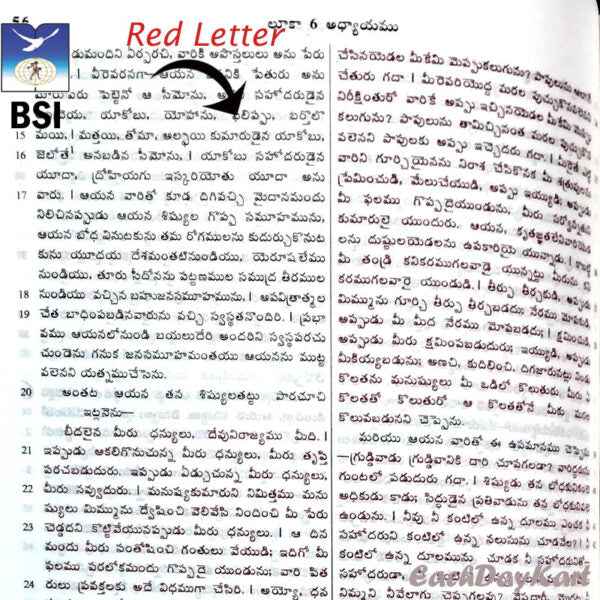 56
లూకా 6 అధ్యాయము
Red Letter
BSI
డుమందిని ఏర్పరచి, వారికి అపొస్తలులు అను పేరు
వీరెవరనగా—ఆయన నికి పేతురు అను
మారుపేరు పెట్టెనో ఆ సీమోను, సహోదరుడైన
యాకోబు, యోహాను, ఫిలిప్పు, బర్తొలొ
15 మయి, । మత్తయి, తోమా, అల్ఫయి కుమారుడైన యాకోబు,
16 జెలోతే అనబడిన సీమోను, । యాకోబు సహోదరుడైన
యూదా, ద్రోహియగు ఇస్కరియోతు యూదా అను
17 వారు. । ఆయన వారితో కూడ దిగివచ్చి మైదానమందు
నిలిచినప్పుడు ఆయన శిష్యుల గొప్ప సమూహమును,
ఆయన బోధ వినుటకును తమ రోగములను కుదుర్చుకొనుట
కును యూదయ దేశమంతటినుండియు, యెరూషలేము
నుండియు, తూరు సీదోనను పట్టణముల సముద్ర తీరముల
18 నుండియు వచ్చిన బహుజనసమూహమును, । అపవిత్రాత్మల
19 చేత బాధింపబడినవారును వచ్చి స్వస్థతనొందిరి. । ప్రభా
వము ఆయనలోనుండి బయలుదేరి అందరిని స్వస్థపరచు
చుండెను గనుక జనసమూహమంతయు ఆయనను ముట్ట
వలెనని యత్నముచేసెను.
20 అంతట ఆయన తన శిష్యులతట్టు పారచూచి
ఇట్లనెను—
బీదలైన మీరు ధన్యులు, దేవునిరాజ్యము మీది. ।
21 ఇప్పుడు ఆకలిగొనుచున్న మీరు ధన్యులు, మీరు తృప్తి
పరచబడుదురు. ఇప్పుడు ఏడ్చుచున్న మీరు ధన్యులు,
22 మీరు నవ్వుదురు. । మనుష్యకుమారుని నిమిత్తము మను
ష్యులు మిమ్మును ద్వేషించి వెలివేసి నిందించి మీ పేరు
23 చెడ్డదని కొట్టివేయునప్పుడు మీరు ధన్యులు. । ఆ దిన
మందు మీరు సంతోషించి గంతులు వేయుడి; ఇదిగో మీ
ఫలము పరలోకమందు గొప్పదై యుండును; వారి పిత
24 రులు ప్రవక్తలకు అదే విధముగా చేసిరి. । అయ్యో, ధన
చేసినయెడల మీకేమి మెప్పుకలుగును? పాపులును
చేతురు గదా. । మీరెవరియొద్ద మరల పుచ్చుకొనవలెనని
నిరీక్షింతురో వారికే అప్పు ఇచ్చినయెడల మీకేమి మెప్పు
కలుగును? పాపులును తామిచ్చినంత మరల పుచ్చుకొన
వలెనని పాపులకు అప్పు ఇచ్చెదరు గదా. ।
వారిని గూర్చియైనను నిరాశ చేసికొనక మీ
ప్రేమించుడి, మేలుచేయుడి, అప్పు ఇయ్యుడి; అప్పుడు
మీ ఫలము గొప్పదైయుండును, మీరు సర్వోన్నతుని
కుమారులై యుందురు. ఆయన, కృతజ్ఞతలేనివారియెడ
లను దుష్టులయెడలను ఉపకారియై యున్నాడు. ।
మీ తండ్రి కనికరముగలవాడై యున్నట్టు మీరును
కరముగలవారై యుండుడి. । తీర్పు తీర్చకుడి, అప్పుడు
మిమ్మును గూర్చి తీర్పు తీర్చబడదు; నేరము మోపకుడి,
అప్పుడు మీ మీద నేరము మోపబడదు; । క్షమించుడి,
అప్పుడు మీరు క్షమింపబడుదురు; ఇయ్యుడి, అప్పుడు
మీకియ్యబడును; అణచి, కుదిలించి, దిగజారునట్లు
కొలతను మనుష్యులు మీ ఒడిలో కొలుతురు. మీరు ఏ
కొలతతో కొలుతురో ఆ కొలతతోనే మీకు మరల
కొలువబడునని చెప్పెను.
మరియు ఆయన వారితో ఈ ఉపమానము చెప్పెను
—గ్రుడ్డివాడు గ్రుడ్డివానికి దారి చూపగలడా? వారిద్దరును
గుంటలో పడుదురు గదా. । శిష్యుడు తన బోధకునికంటె
అధికుడు కాడు; సిద్ధుడైన ప్రతివాడును తన బోధకునివలె
ఉండును. । నీవు నీ కంటిలో ఉన్న దూలము ఎంచక నీ
సహోదరుని కంటిలో ఉన్న నలుసును చూడనేల? ।
కంటిలో ఉన్న దూలమును చూడక నీ సహోదరునితో
సహోదరుడా, నీ కంటిలో ఉన్న
నిన్ను నీవేలాగు చెప్పగలవు?
EachDayKart